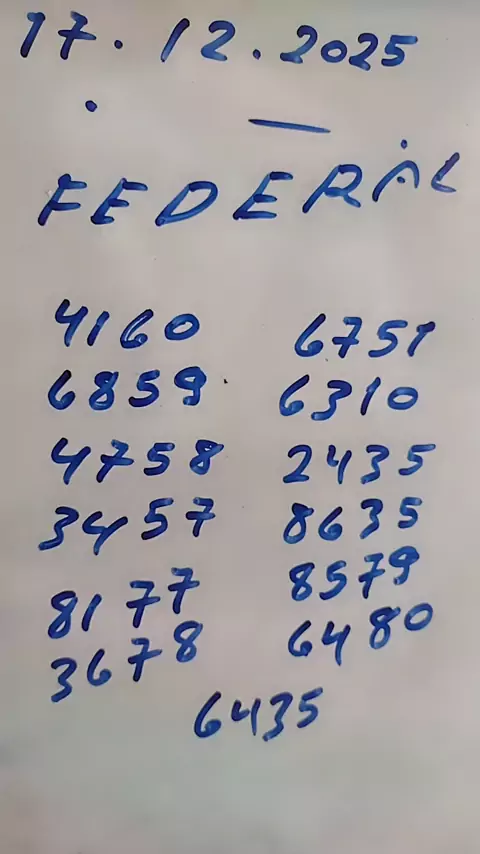 17.12.2025
FEDERAL
4160 6751
6859 6310
4758 2435
3457 8635
8177 8579
3678 6480
6435